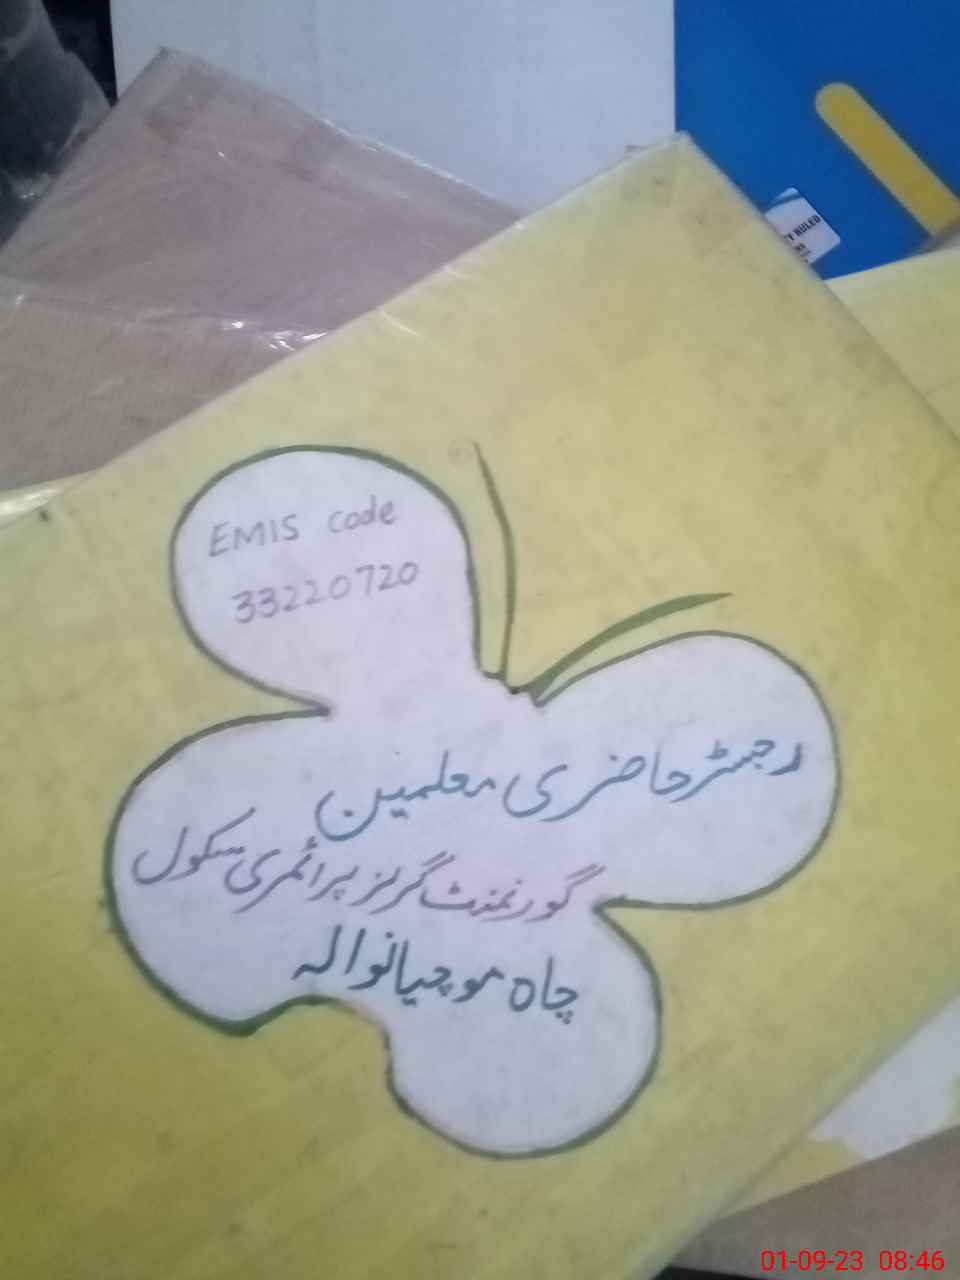 Y RULED
EMIS code
33220720
رجسٹر حاضری معلمین
گورنمنٹ گرلز پرائمری سکول
چاہ موچیانوالہ
01-09-23 08:46